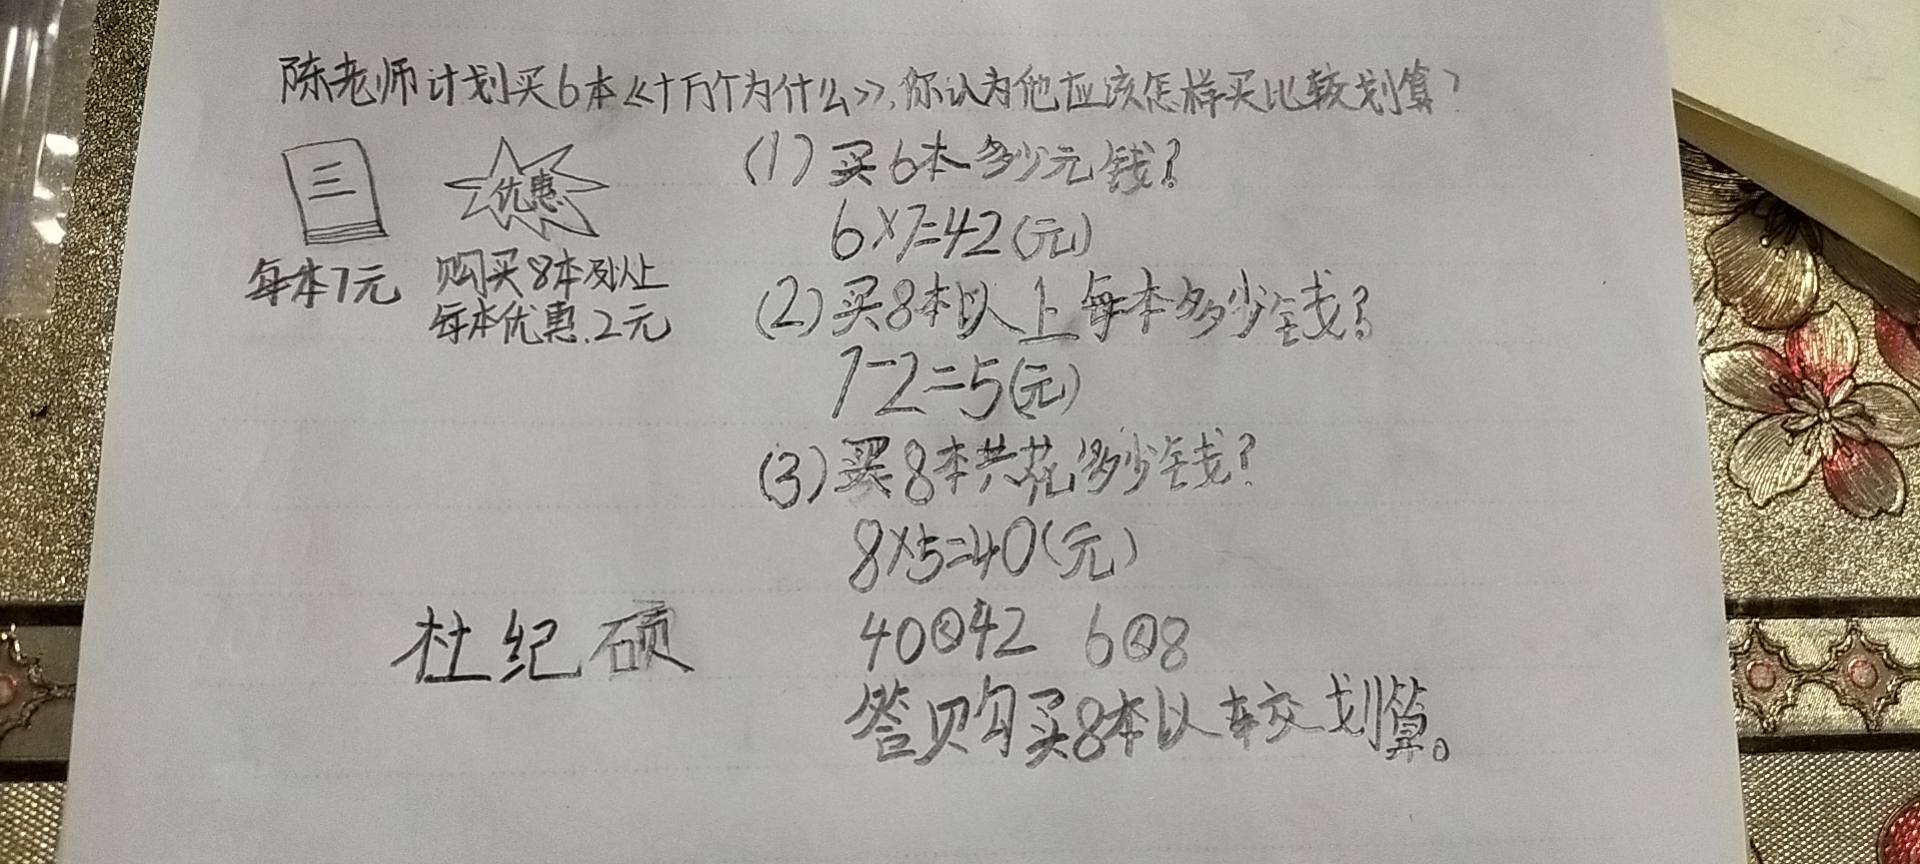 陈老师计划买6本《十万个为什么》,你认为他应该怎样买比较划算?
三
优惠
每本7元
购买8本及以上
每本优惠.2元
(1)买6本多少元钱?
6×7=42(元)
(2)买8本以上每本多少钱?
7-2=5(元)
(3)买8本共花多少钱?
8×5=40(元)
40<42 6<8
答购买8本以较划算。
杜纪硕